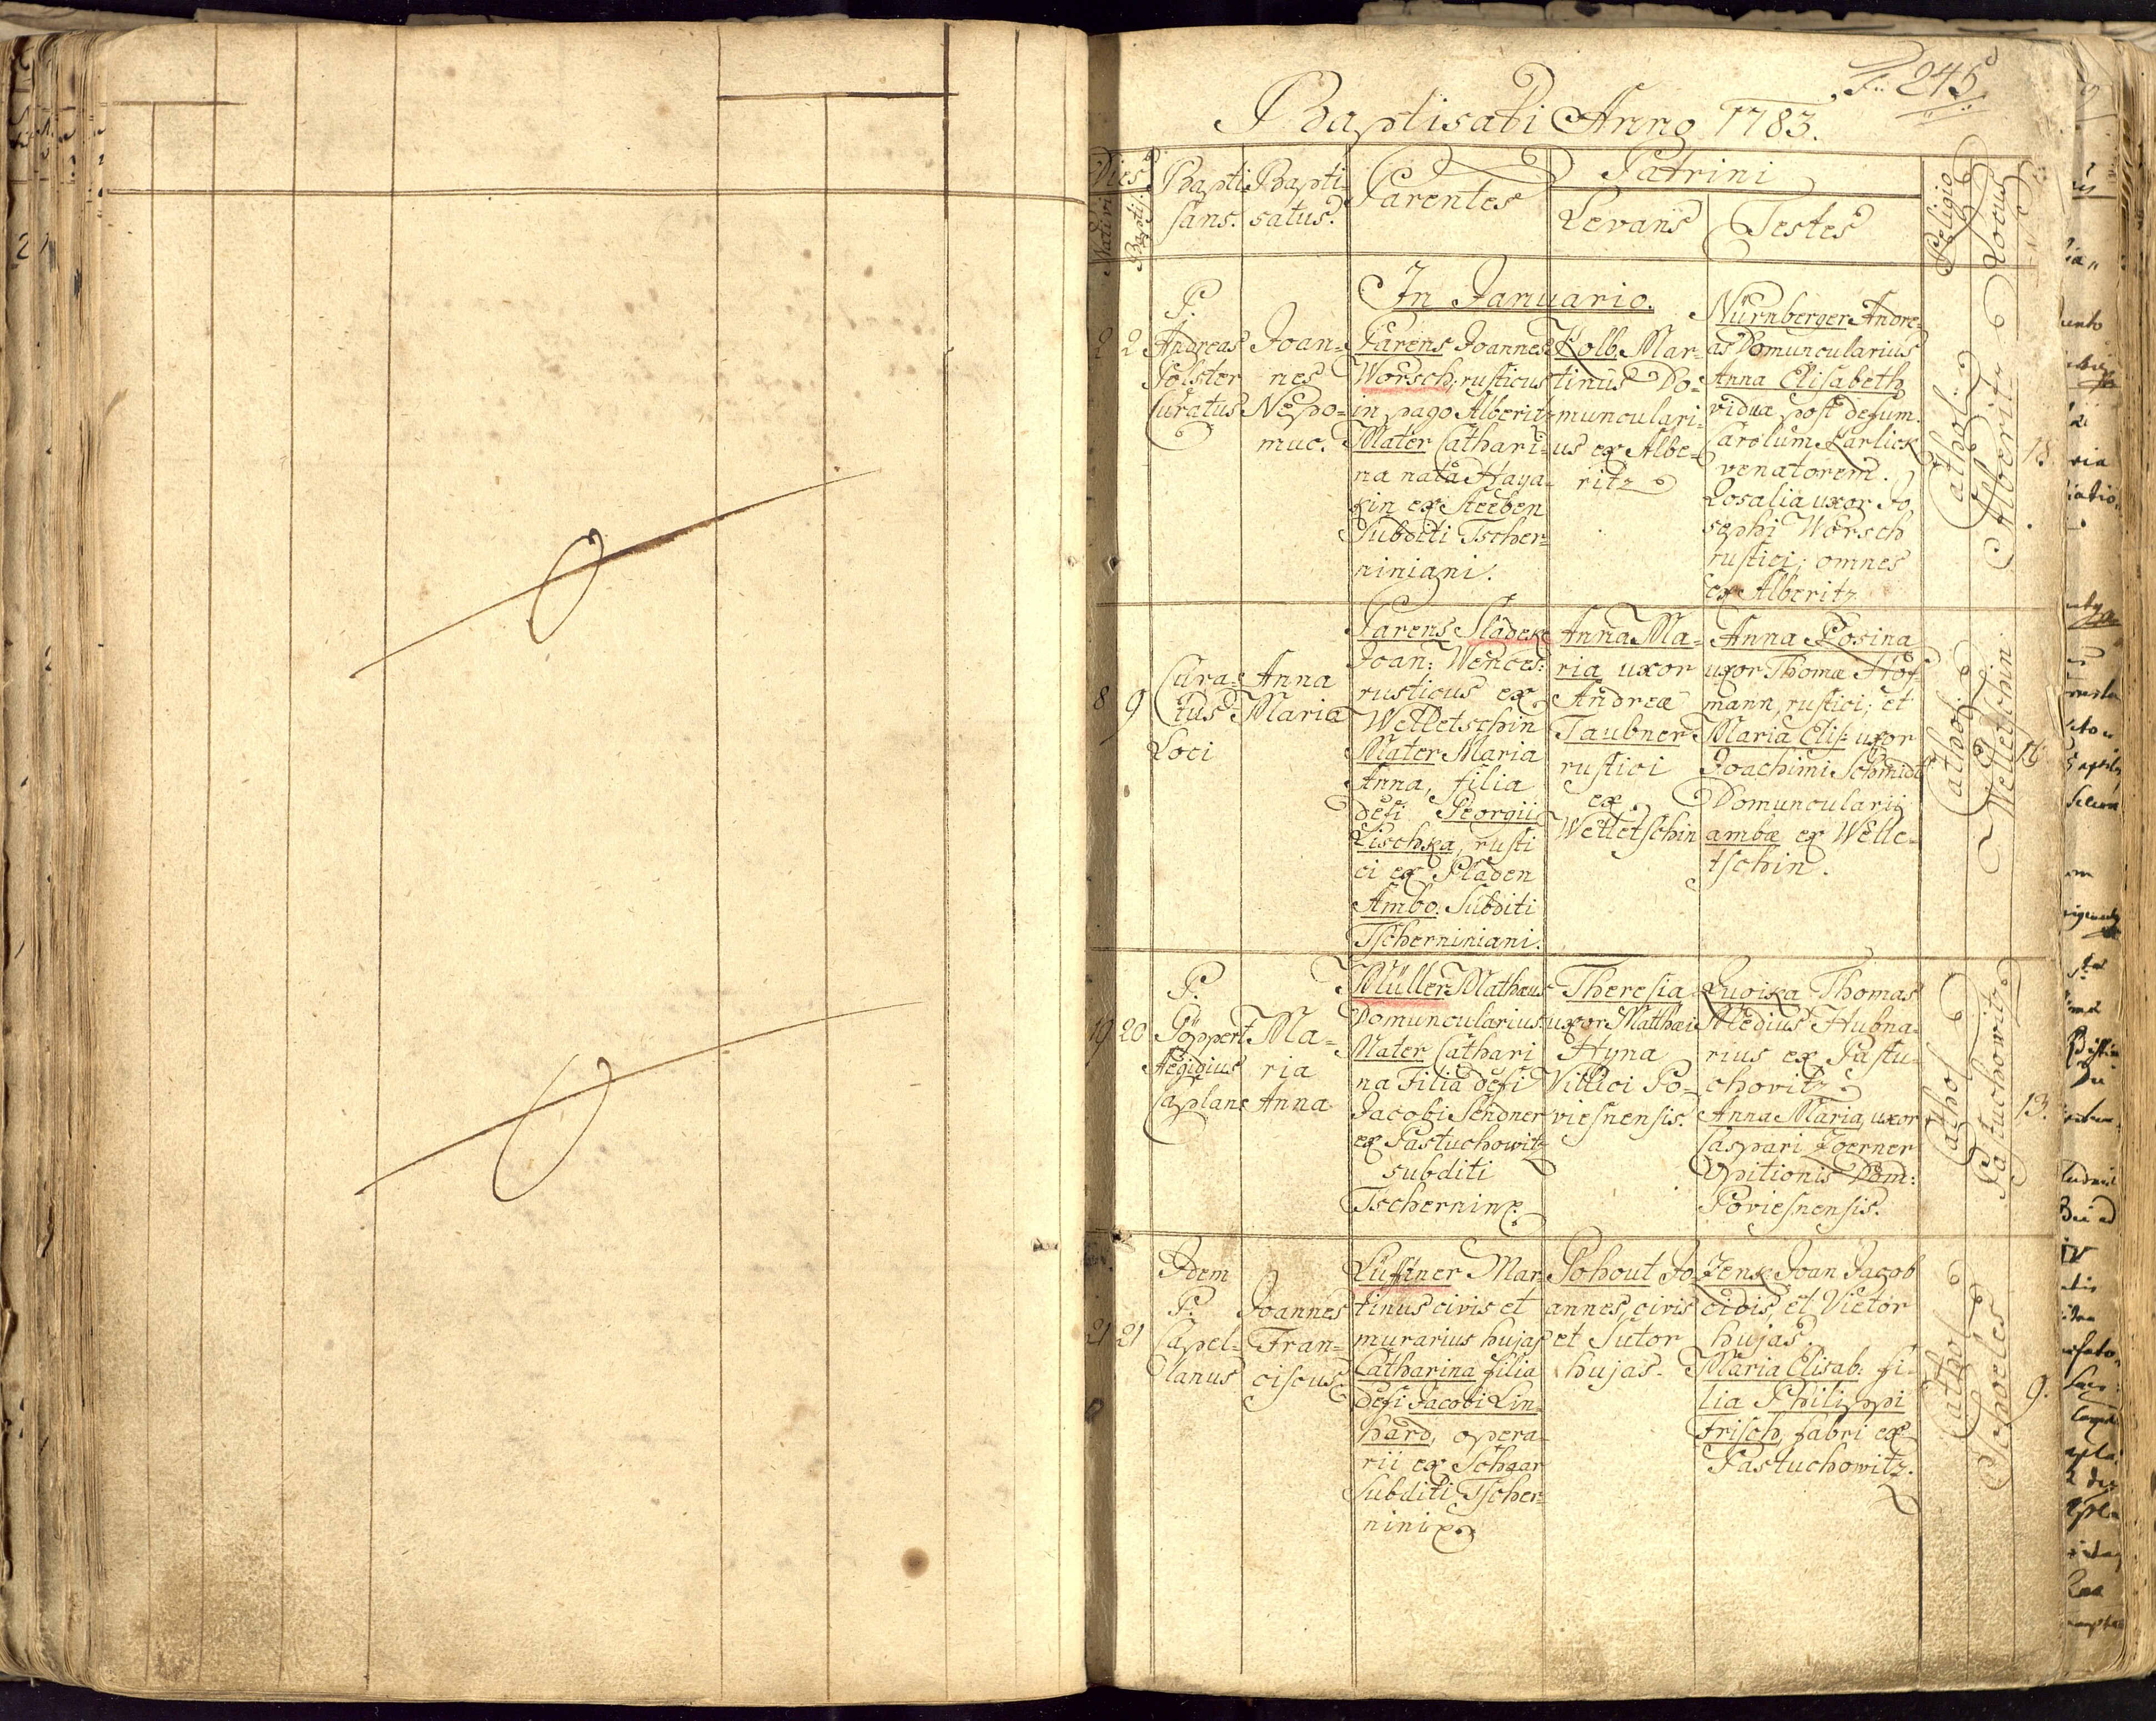 F. 245
Baptisati Anno 1783.
Dies
Nativi
Baptis.
Bapti
sans.
Bapti-
satus.
Parentes
Patrini
Levans
Testes
Religio
Locus
In Januario.
2
2
P.
Andreas
Polster
Curatus
Joan-
nes
Nepo-
muc.
Parens Joannes
Worsch, rusticus
in pago Alberitz
Mater Cathari-
na nata Haya-
kin ex Steeben
Subditi Tscher-
niniani.
Kolb Mar-
tinus Do-
munculari-
us ex Albe-
ritz
Nürnberger Andre-
as Domuncularius
Anna Elisabeth
vidua post defum.
Carolum Karlick
venatorem.
Rosalia uxor Jo
sephi Worsch
rustici; omnes
ex Alberitz
Cathol:
Alberitz
8
9
Cura-
tus
Loci
Anna
Maria
Parens Sladek
Joan: Wences:
rusticus ex
Welletschin
Mater Maria
Anna, filia
defi Georgii
Lischka, rusti
ci ex Pladen
Ambo Subditi
Tscherniniani.
Anna Ma-
ria uxor
Andreæ
Taubner
rustici
ex
Welletschin
Anna Rosina
uxor Thomæ Hof-
mann, rustici; et
Maria Elis: uxor
Joachimi Schmidt
Domuncularii
ambæ ex Welle-
tschin.
Cathol:
Welletschin
16
19
20
P.
Göppert
Aegidius
Caplan:
Ma-
ria
Anna
Müller Mathæus
Domuncularius
Mater Cathari
na Filia defi
Jacobi Sendner
ex Pastuchowitz
subditi
Tscherninx.
Theresia
uxor Matthæi
Hyna
Villici Po-
viesnensis.
Thomas
Medius Hubna-
rius ex Pastu-
chovitz
Anna Maria, uxor
Caspari Zoerner
Opitionis Dom:
Poviesnensis.
Cathol
Pastuchovitz
13.
21
21
Idem
P.
Capel-
lanus
Joannes
Fran-
ciscus
Lufftner Mar-
tinus civis et
murarius hujas
Catharina filia
defi Jacobi Lin-
hard, opera-
rii ex Schaar
Subditi Tscher-
ninix
Pohout Jo-
annes, civis
et Sutor
hujas.
Zenk Joan Jacob
civis et Vietor
hujas.
Maria Elisab: fi-
lia Philippi
Frisch, fabri ex
Pastuchowitz.
Cathol
Schoeles
9.